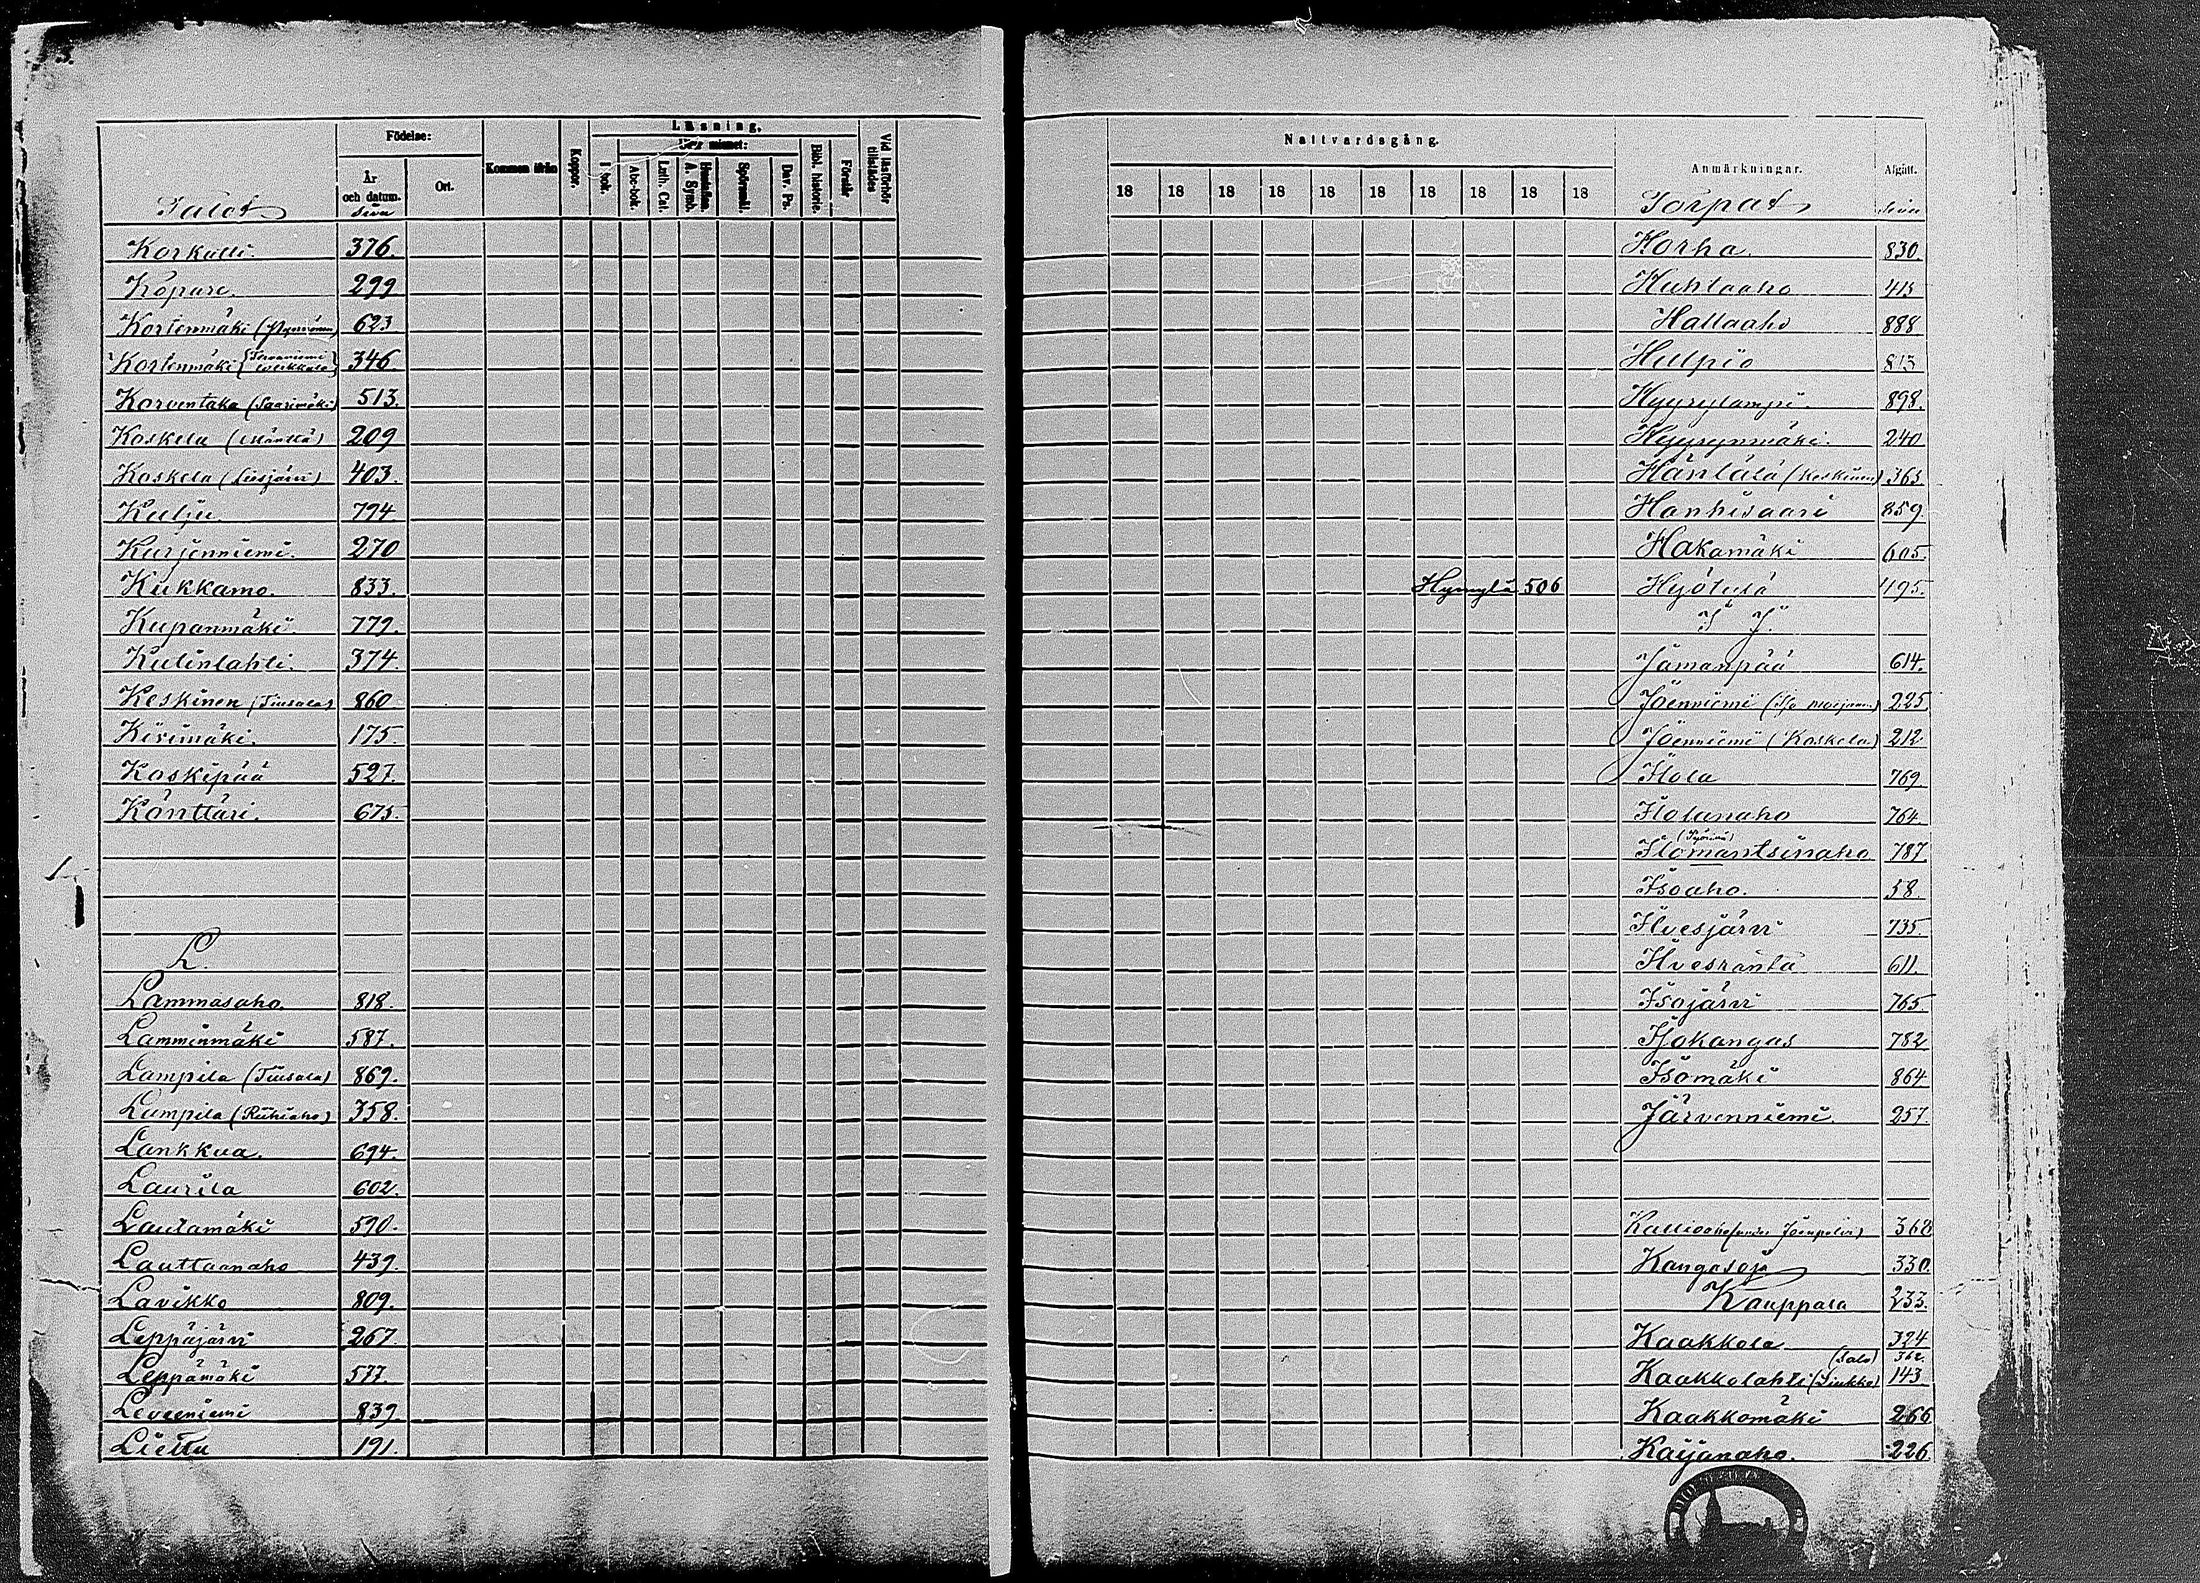 Födelse:
År och datum.
Ort.
Kommen ifrån
Koppor.
Läsning.
Utur minnet:
I bok.
Abc-bok.
Luth. Cat.
Hustaflan. A. Symb.
Spörsmål.
Dav. Ps.
Bibl. historie.
Förstår
Vid läsförhör tillstädes
Talot Sivu
Korkalli. 376.
Kopare. 299
Kortenmäki 623
Kostenmäki 346
Korventaka (Saarimäki) 513.
Koskela (Mänttä) 209
Koskela (Liesjärvi) 403.
Kulju 794
Kurjenniemi. 270
Kukkamo. 833.
Kupanmäki. 779.
Kulinlahti. 374.
Keskinen (Tiusala) 860
Kivimäki. 175.
Koskipää 527.
Könttäri. 675.
L.
Lammasaho. 818.
Lamminmäki 587.
Lampila (Tiusala) 869.
Lampila (Riihiaho) 358.
Lankkua. 694.
Laurila 602.
Lautamäki 590.
Lauttaanaho 439.
Lavikko 809.
Leppäjärvi 267
Leppämäki 577.
Leveeniemi 839
Lietta 191.
Nattvardsgång.
18 18 18 18 18 18 18 18 18 18
Anmärkningar.
Afgått.
Torpat Sivu
Horha. 830.
Huhtaaho 413
Hallaaho 888
Hulpio 813
Hyyrylampi. 898.
Hyyrynmäki. 240
Häntälä (Keskinen) 363
Hanhisaari 859.
Hakamäki 605.
Hymylä 506 Hyötylä 495.
I J.
Jämanpää 614.
Joenniemi 225
Joenniemi (Koskela) 212.
Ilola 769.
Ilolanaho 764.
Ilomantsinaho 787.
Isoaho. 58.
Ilvesjärvi 735.
Ilvesranta 611.
Isojärvi 765
Isokangas 782
Isomäki 864
Järvenniemi. 257.
Kallioaho 368
Kangasoja 330.
Kauppala 233.
Kaakkola 324
(Salo) 362.
Kaakkolahti (Liukko) 143
Kaakkomäki 266
Kaijanaho. 226.